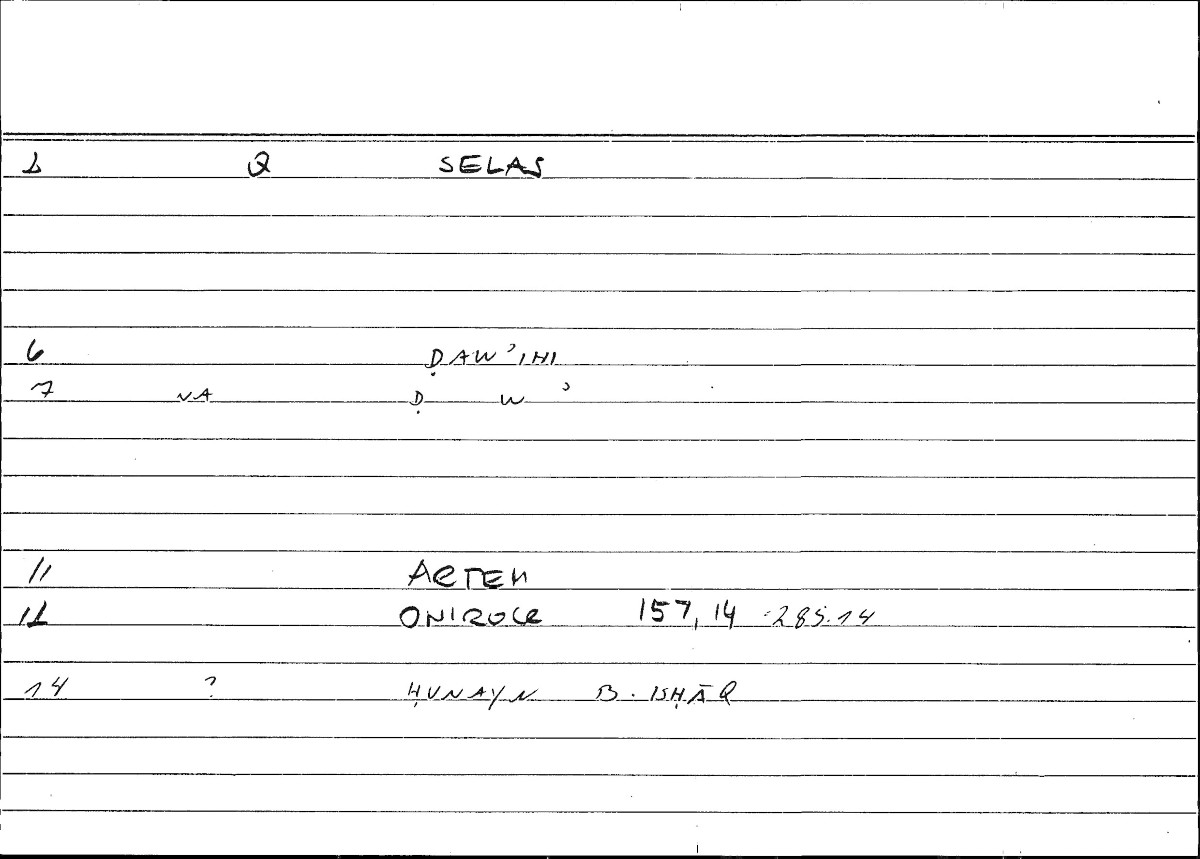 1 Q SELAS
6 ḌAWʾIHI
7 NA Ḍ W ʾ
11 ARTEM
12 ONIROCR 157,14 285.14
14 ? ḤUNAYN B. ISḤĀQ